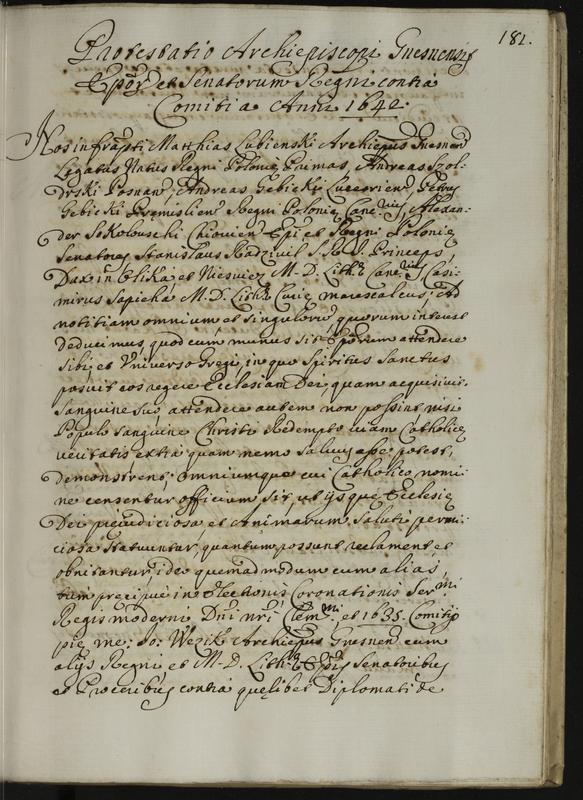 181.
Protestatio Archiepiscopi Gnesnensis
Epõr. et Senatorum Regni contra
Comitia Anni 1642.
Nos infrãpti Matthias Lubienski Archiepus Gnesnen
Legatus Natus Regni Polonię Primas, Andreas Szol-
drski Posnan, Andreas Gębicki Luceorien, Petrus
Gębicki Premislien Regni Polonię Canc rius, Alexan-
der Sokołowski Chiovien Epi et Regni Polonię
Senatores Stanislaus Radziwil S. R. I. Princeps,
Dux in Olika et Nieswież M. D. Lith. Canc rius, Casi-
mirus Sapieha M. D. Lith. Curię marescalcus; Ad
notitiam omnium et singulorũ, quorum interest
deducimus, quod cum munus sit Epõrum attendere
sibi et Vniverso Gregi, in quo Spiritus Sanctus
posuit eos regere Ecclesiam Dei, quam acquisivit
Sanguine suo, attendere autem non possint nisi
Populo sanguine Christi Redempto viam Catholicę
veritatis extra quam nemo salvus esse potest,
demonstrent; omniumque cui Catholico nomi-
ne censentur officium sit, ut ijs quę Ecclesię
Dei pręjudiciosa et Animarum Saluti perni-
ciosa statuuntur, quantum possunt reclament et
obnitantur, ideo quemadmodum cum alias,
tum pręcipue in Electionis Coronationis Ser mi
Regis moderni Dñi nr̃i Clem mi et 1635. Comitijs
pię me: Jo: Wężik Archiepus Gnesnen cum
alijs Regni et M. D. Lith. Epis Senatoribus
et Proceribus contra quęlibet Diplomati de